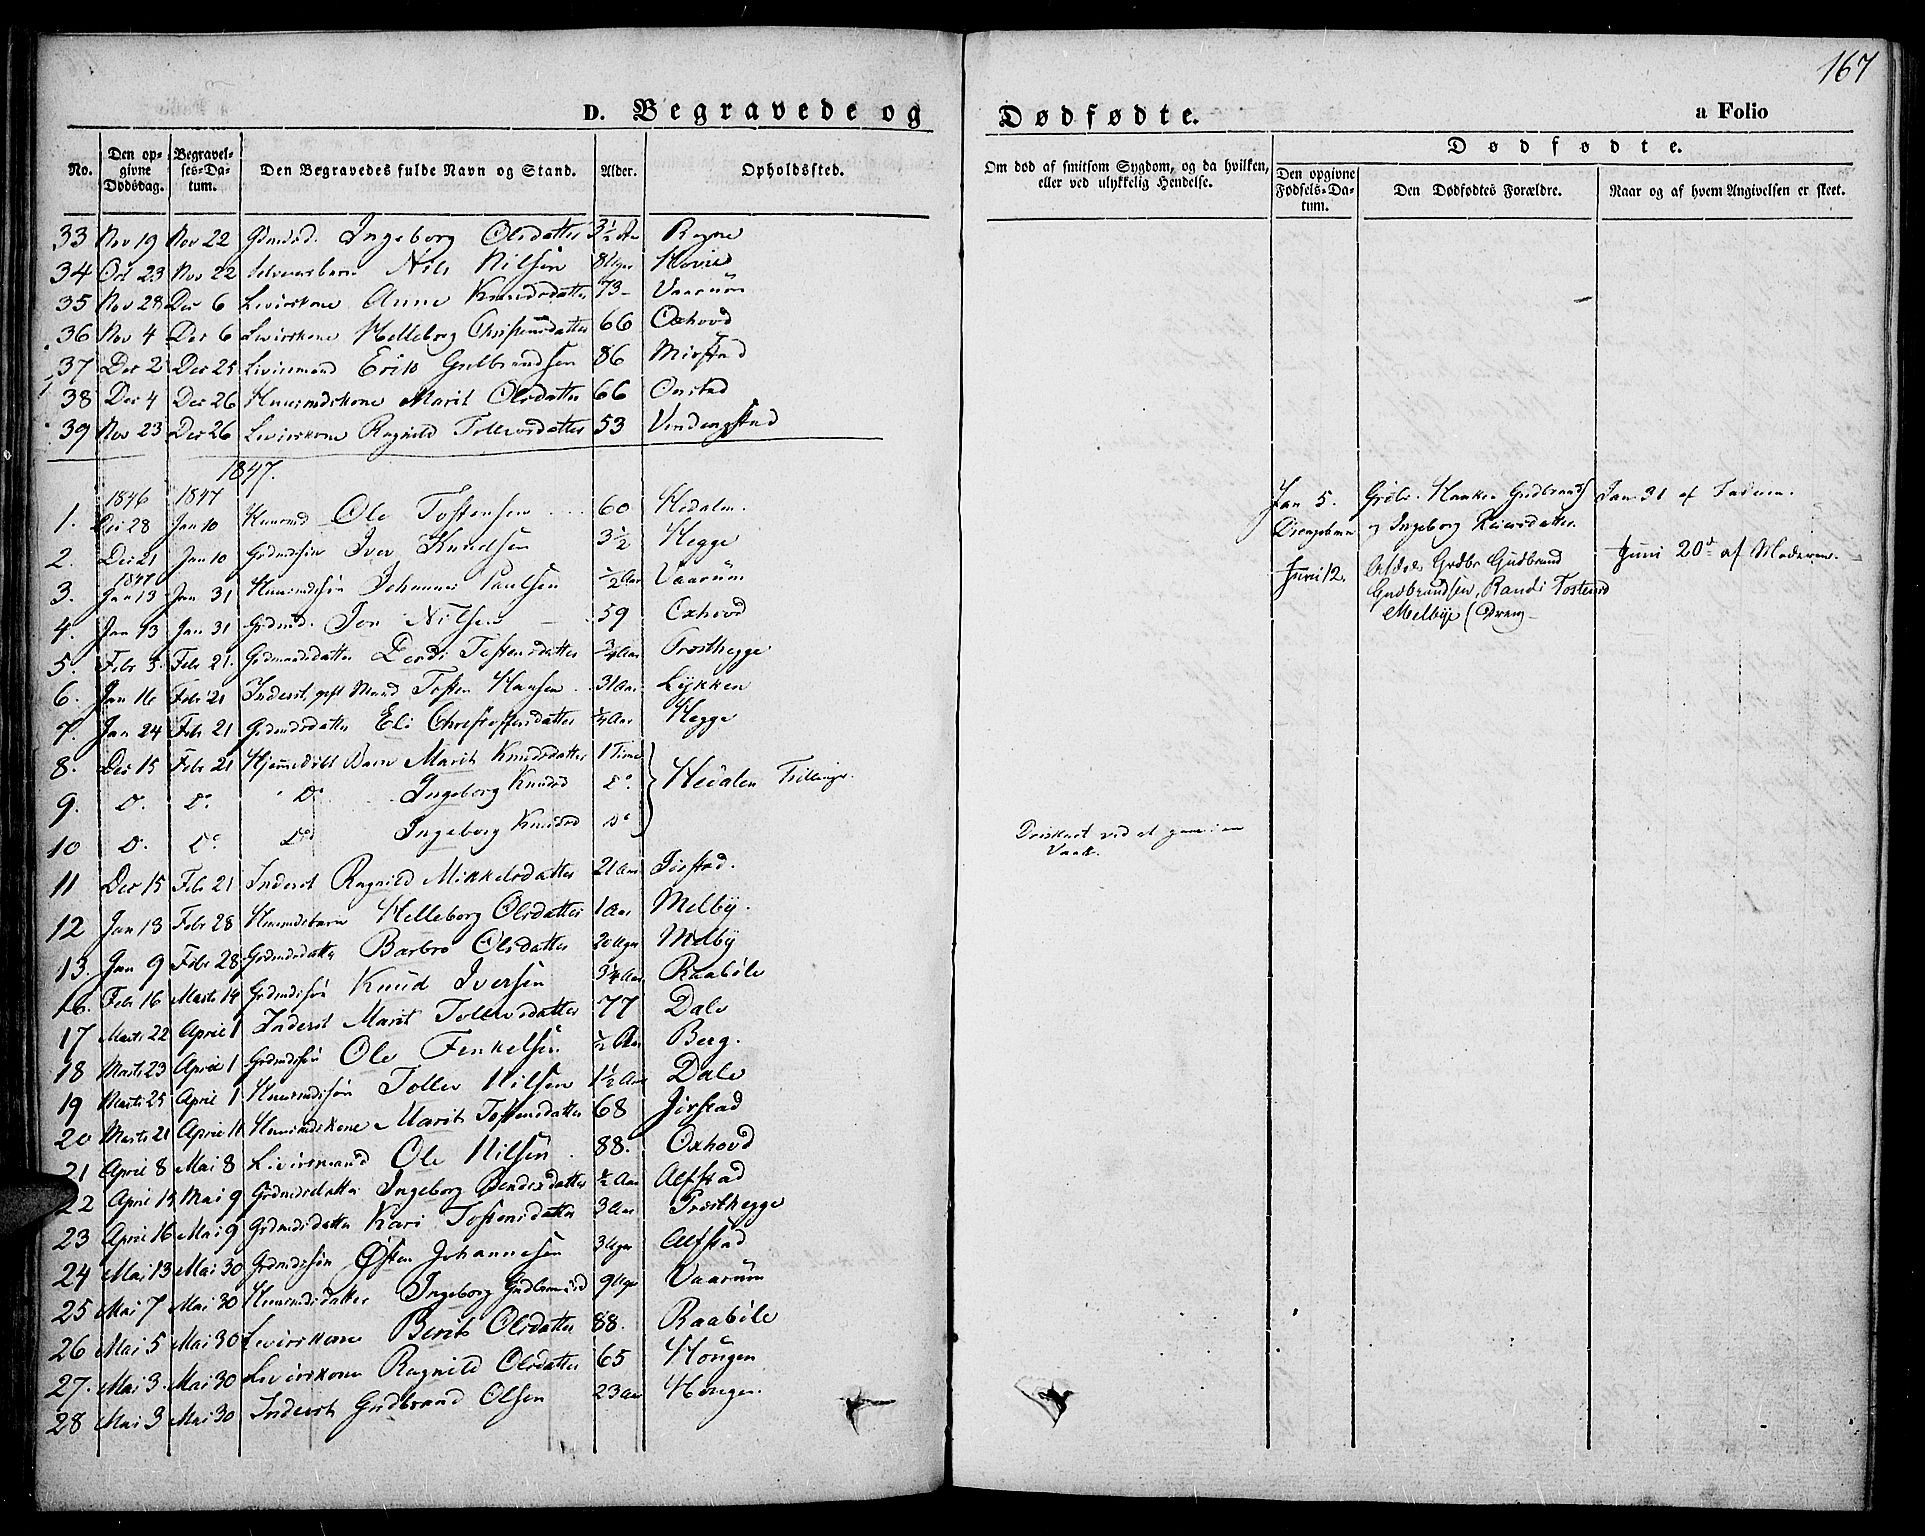 167
D. Begravede og Dødfødte. a Folio
No. Den opgivne Dødsdag. Begravelses-Datum. Den Begravedes fulde Navn og Stand. Alder. Opholdssted.
Om død af smitsom Sygdom, og da hvilken, eller ved ulykkelig Hendelse.
Dødfødte.
Den opgivne Fødsels-Datum. Den Dødfødtes Forældre. Naar og af hvem Angivelsen er skeet.
33 Nov 19 Nov 22 Ingeborg Olsdatter 3½ Aar Rogne
34 Oct 23 Nov 22 Nils Nilsen 8 Uger Hovie
35 Nov 28 Dec 6 Anne Knudsdatter 73 Vaarum
36 Nov 4 Dec 6 Helleborg Christensdatter 66 Oxhovd
37 Dec 2 Dec 25 Erik Gulbrandsen 86 Mirstad
38 Dec 4 Dec 26 Huusmdskone Marit Olsdatter 66 Onstad
39 Nov 23 Dec 26 Ragnild Tollevsdatter 53 Vindingstad
1847.
1846 1847
1. Dec 28 Jan 10 Huusmd Ole Tostensen 60 Hedalen
2. Dec 21 Jan 10 Grdmdssøn Iver Knudsen 3½ Hegge
1847
3. Jan 13 Jan 31 Huusmdssøn Johannes Paulsen ½ Aar Vaarum
4. Jan 13 Jan 31 Grdmd. Jon Nilsen 59 Oxhovd
5. Febr 3. Febr 21. Grdmandsdatter Tostensdatter ¾ Aar Prosthegge
6. Jan 16 Febr 21 Inderst, gift Mand Tosten Hansen 31 Aar Lykken
7. Jan 24 Febr 21 Grdmdsdatter Eli Christophersdatter Aar Hegge
8. Dec 15 Febr 21 Hjemmedøbt Barn Marit Knudsdatter 1 Time
9. Do. Do. Do Ingeborg Knudsd Do. Hedalen Trillinger.
10 Do. Do Do Ingeborg Knudsd Do
11 Dec 15 Febr 21 Inderst Ragnild Mikkelsdatter 21 Aar Jorstad.
12 Jan 13 Febr 28 Huusmdsbarn Helleborg Olsdatter 1 Aar Melby.
13. Jan 9 Febr 28 Grdmdsdatter Barbro Olsdatter 20 Uger Melby
16. Febr 16 Marts 14 Grdmdssøn Knud Iversen 3¼ Aar Raabøle
17 Marts 22 April 1 Inderst Marit Tollevsdatter 77 Dale
18 Marts 23 April 1 Grdmdssøn Ole Tenkelsen ½ Aar Berg.
19 Marts 25 April 1 Huusmdssøn Tollev Nilsen 1½ Aar Dale
20 Marts 21 April 11 Huusmdskone Marit Tostensdatter 68 Jorstad
21 April 8 Mai 8 Ole Nilsen 88. Oxhovd
22 April 15 Mai 9 Grdmdsdatter Ingeborg Bendesdatter ½ Aar Alfstad
23 April 16 Mai 9 Grdmdsdatter Kari Tostensdatter 3 Aar Prosthegge
24 Mai 13 Mai 30 Grdmdssøn Østen Johannesen 3 Uger Alfstad
25 Mai 7 Mai 30 Huusmdsdatter Ingeborg Gudbrandsd 9 Uger Vaarum
26 Mai 5 Mai 30 Berit Olsdatter 88. Raabøle
27. Mai 3. Mai 30 Ragnild Olsdatter 65 Hougen
28 Mai 3 Mai 30 Inderst Gudbrand Olsen 23 Aar Hougen.
Druknet ved at gaae i en
Vaak.
Jan 5. Grdbr. Haaken Gudbrands Jan 31 af Faderen.
Drengebarn og Ingeborg Reiersdatter.
Juni 12. Grdbr Gudbrand Juni 20de af Moderen.
Gudbrandsen, Randi Tostensd
Melbye (Dreng